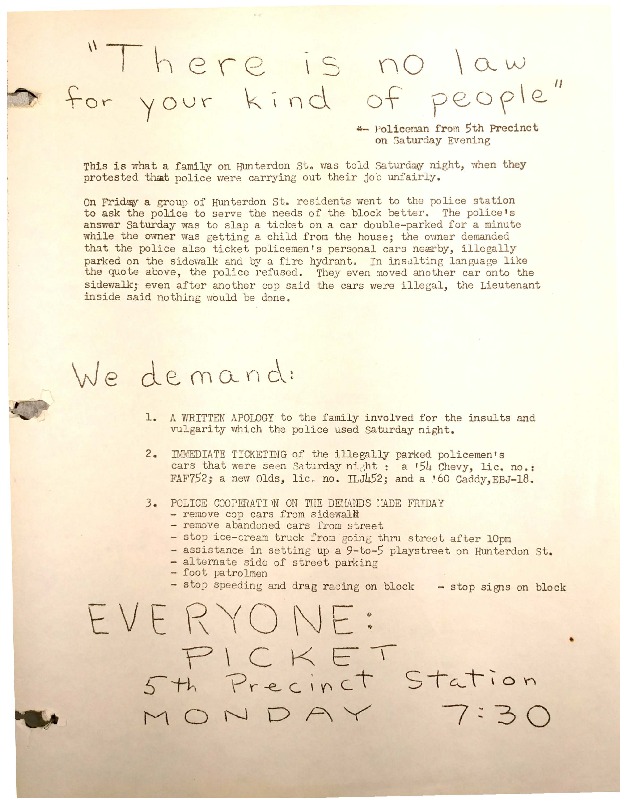 "There is no law
for your kind of people"
"- Policeman from 5th Precinct
on Saturday Evening
This is what a family on Hunterdon St. was told Saturday night, when they
protested that police were carrying out their job unfairly.
On Friday a group of Hunterdon St. residents went to the police station
to ask the police to serve the needs of the block better. The police's
answer Saturday was to slap a ticket on a car double-parked for a minute
while the owner was getting a child from the house; the owner demanded
that the police also ticket policemen's personal cars nearby, illegally
parked on the sidewalk and by a fire hydrant. In insulting language like
the quote above, the police refused. They even moved another car onto the
sidewalk; even after another cop said the cars were illegal, the Lieutenant
inside said nothing would be done.
We demand:
1. A WRITTEN APOLOGY to the family involved for the insults and
vulgarity which the police used Saturday night.
2. IMMEDIATE TICKETING of the illegally parked policemen's
cars that were seen Saturday night : a '54 Chevy, lic. no.:
FAF752; a new Olds, lic. no. ILJ452; and a '60 Caddy,EBJ-18.
3. POLICE COOPERATION ON THE DEMANDS MADE FRIDAY
- remove cop cars from sidewalk
- remove abandoned cars from street
- stop ice-cream truck from going thru street after 10pm
- assistance in setting up a 9-to-5 playstreet on Hunterdon St.
- alternate side of street parking
- foot patrolmen
- stop speeding and drag racing on block - stop signs on block
EVERYONE:
PICKET
5th Precinct Station
MONDAY 7:30